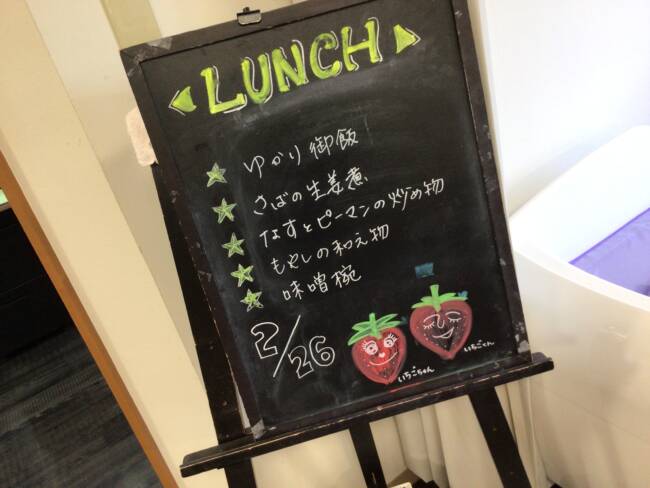 LUNCH
ゆかり御飯
さばの生姜煮
なすとピーマンの炒め物
もやしの和え物
味噌椀
2/26
いちごちゃん
いちごくん